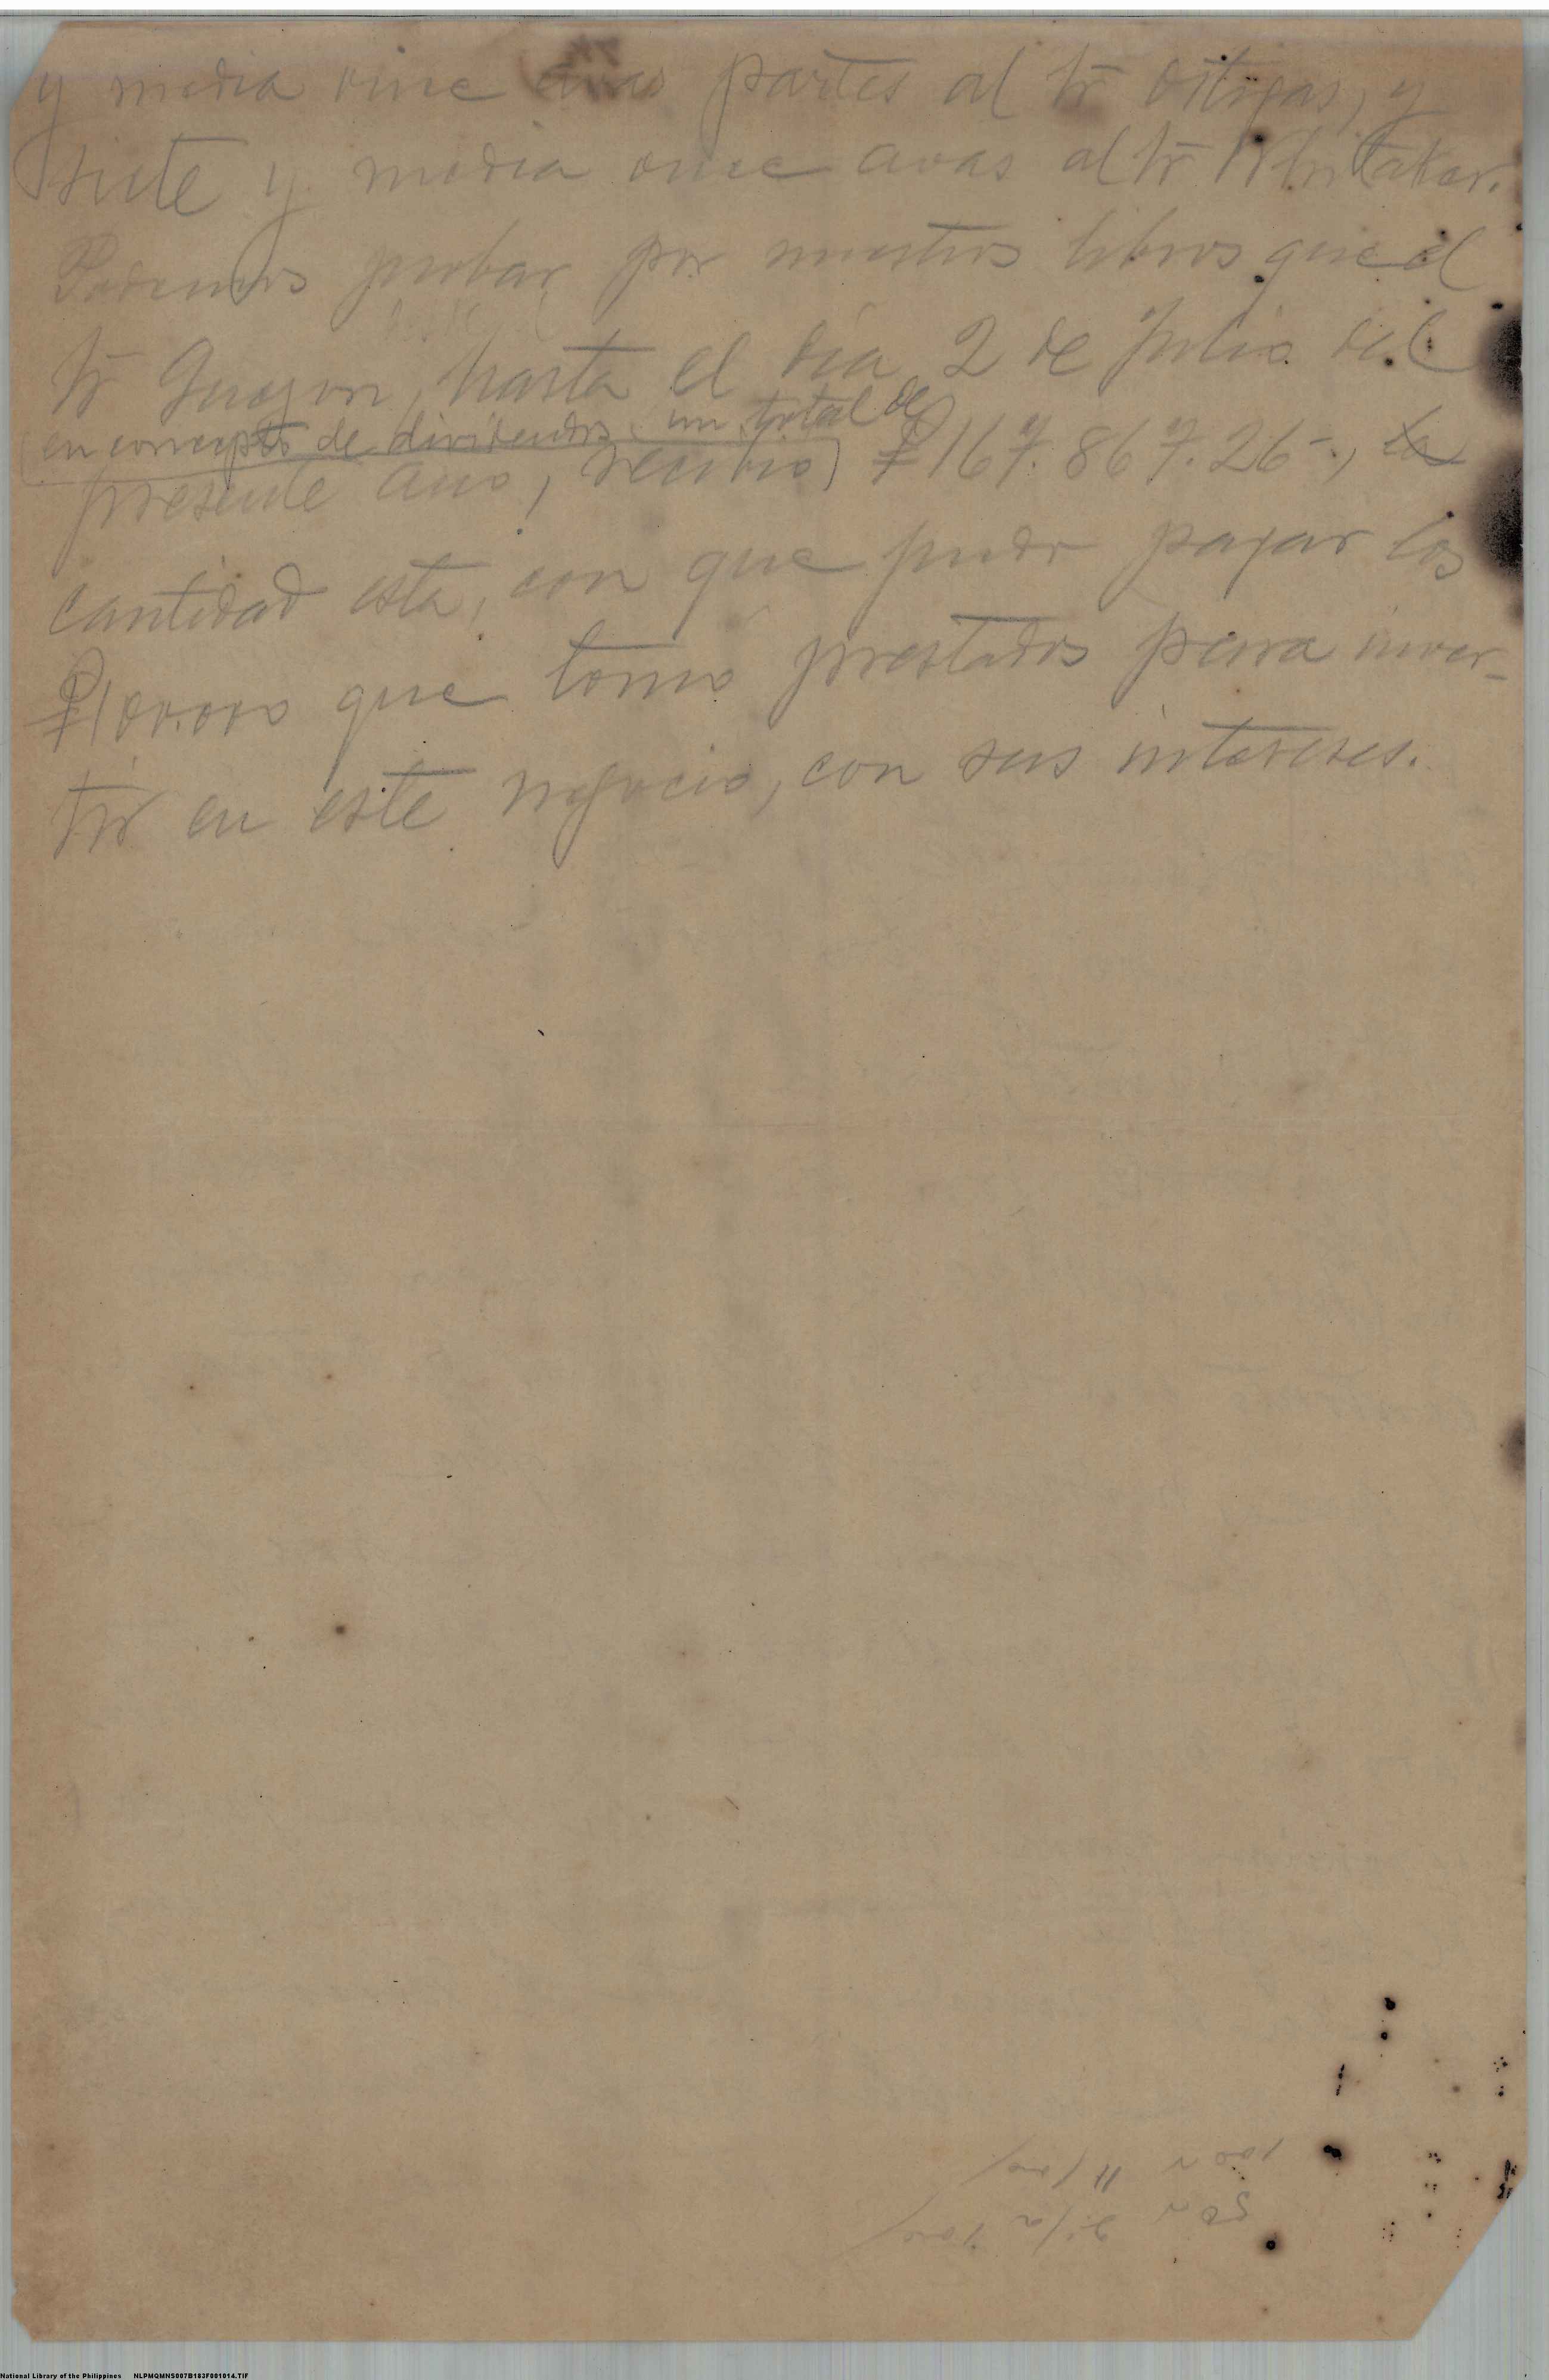 y media once avas partes al Sr Ortigas, y
siete y media once avas al Sr Whitaker.
Podemos probar por nuestros libros que el
Sr Quezon, hasta el día 2 de Julio del
(en concepto de dividendos un total de
presente año, recibió) ₱167.867.26-, la
cantidad esta, con que pudo pagar los
₱100.000 que tomó prestados para inver-
tir en este negocio, con sus intereses.
National Library of the Philippines NLPMQMNS007B183F001014.TIF